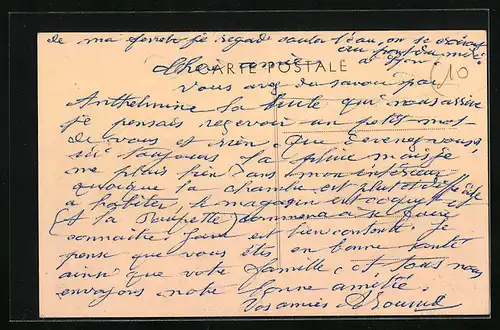 de ma fenetre je regarde couler l'eau, on se croirait
au pont du midi
CARTE POSTALE
à Lyon.
10
Chers amis
Vous avez du savoir par
Anthelmine la tuile qui nous arrive
je pensais recevoir un petit mot
de vous et rien. Que devenez-vous,
ici toujours la pluie mais je
me plais bien dans mon intérieur
quoique la chambre est plutot difficile
a habiter, le magasin est coquet et
(A la Poupette) commence a se faire
connaitre. est bien contente. Je
pense que vous êtes en bonne santé
ainsi que votre famille, et tous nous
envoyons notre bonne amitié.
Vos amies